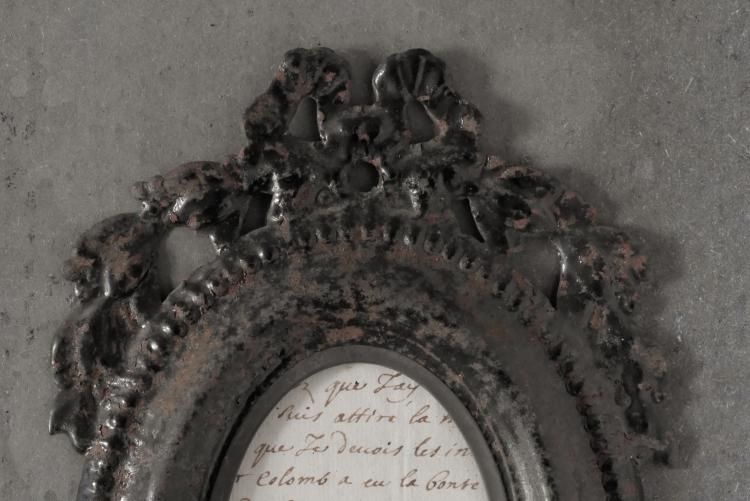 que J'ay
puis attiré la
que Je devois les in
Colomb a eu la bonté